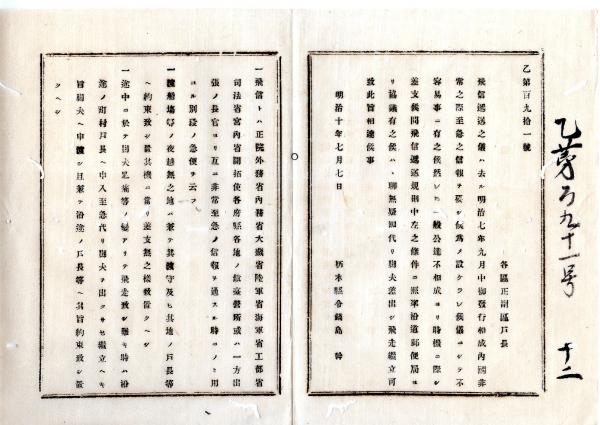 乙第百九十一号
十二
乙第百九拾一號
各區正副區戸長
飛信遞送之儀ハ去ル明治七年九月中御發行相成內國非
常之際至急之信報ヲ要シ候爲メ設クラレ候儀ニシテ不
容易事ニ有之候然レハ一般公達不相成ヨリ時機ニ際シ
差支候間飛信遞送規則中左之條件ニ沿道郵便局ヨ
リ協議有之候ハヽ聊無疑即代リ脚夫差出シ飛走繼立可
致此旨相達候事
明治十年七月七日
栃木縣令鍋島幹
一飛信トハ正院外務省內務省大藏省陸軍省海軍省工部省
司法省宮內省開拓使各府縣各地ノ鎭臺營所或ハ一方出
張ノ長官ヨリ互ニ非常至急ノ信報ヲ通スル時ニノミ用
ユル別段ノ急便ヲ云フ
一渡船場等ノ夜越無之地ハ兼テ其渡守及ヒ其地ノ戸長等
ヘ約束致シ置其機ニ當リ差支無之樣致置クヘシ
一途中ニ於テ脚夫足痛等ノ變アリテ飛走致シ難キ時ハ沿
道ノ町村戸長ヘ申入至急代リ脚夫ヲ出サセ繼立ヘキ
旨脚夫ヘ申渡シ且兼テ沿道ノ戸長等ヘ其旨約束致シ置
クヘシ